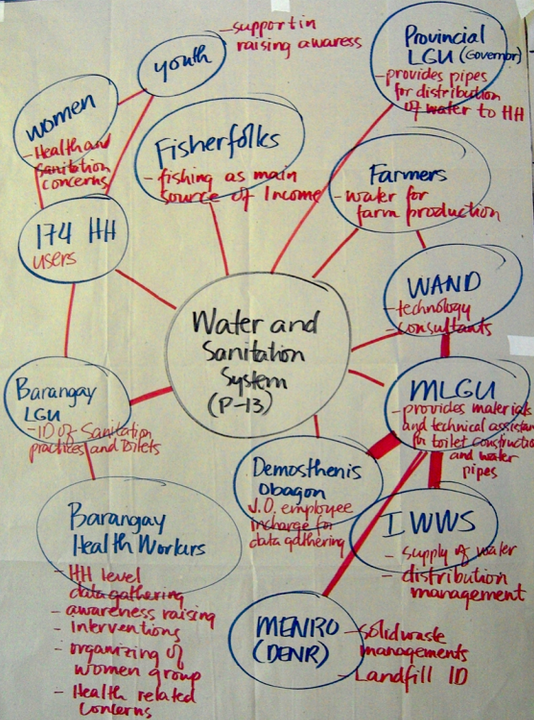 youth
- support in
raising awaress
Provincial
LGU (Governor)
- provides pipes
for distribution
of water to HH
women
- Health and
sanitation
concerns
Fisherfolks
- fishing as main
source of Income
Farmers
- water for
farm production
174 HH
users
WAND
- technology
- consultants
Water and
Sanitation
System
(P-13)
Barangay
LGU
- ID of Sanitation
practices and Toilets
MLGU
- provides materials
and technical assistan
for toilet constructio
and water
pipes
Demosthenis
Obagon
J.O. employee
incharge for
data gathering
IWWS
- supply of water
- distribution
management
Barangay
Health Workers
- HH level
data gathering
- awareness raising
- Interventions
- organizing of
women group
- Health related
Concerns
MENRO
(DENR)
- Solid waste
managements
- Landfill ID